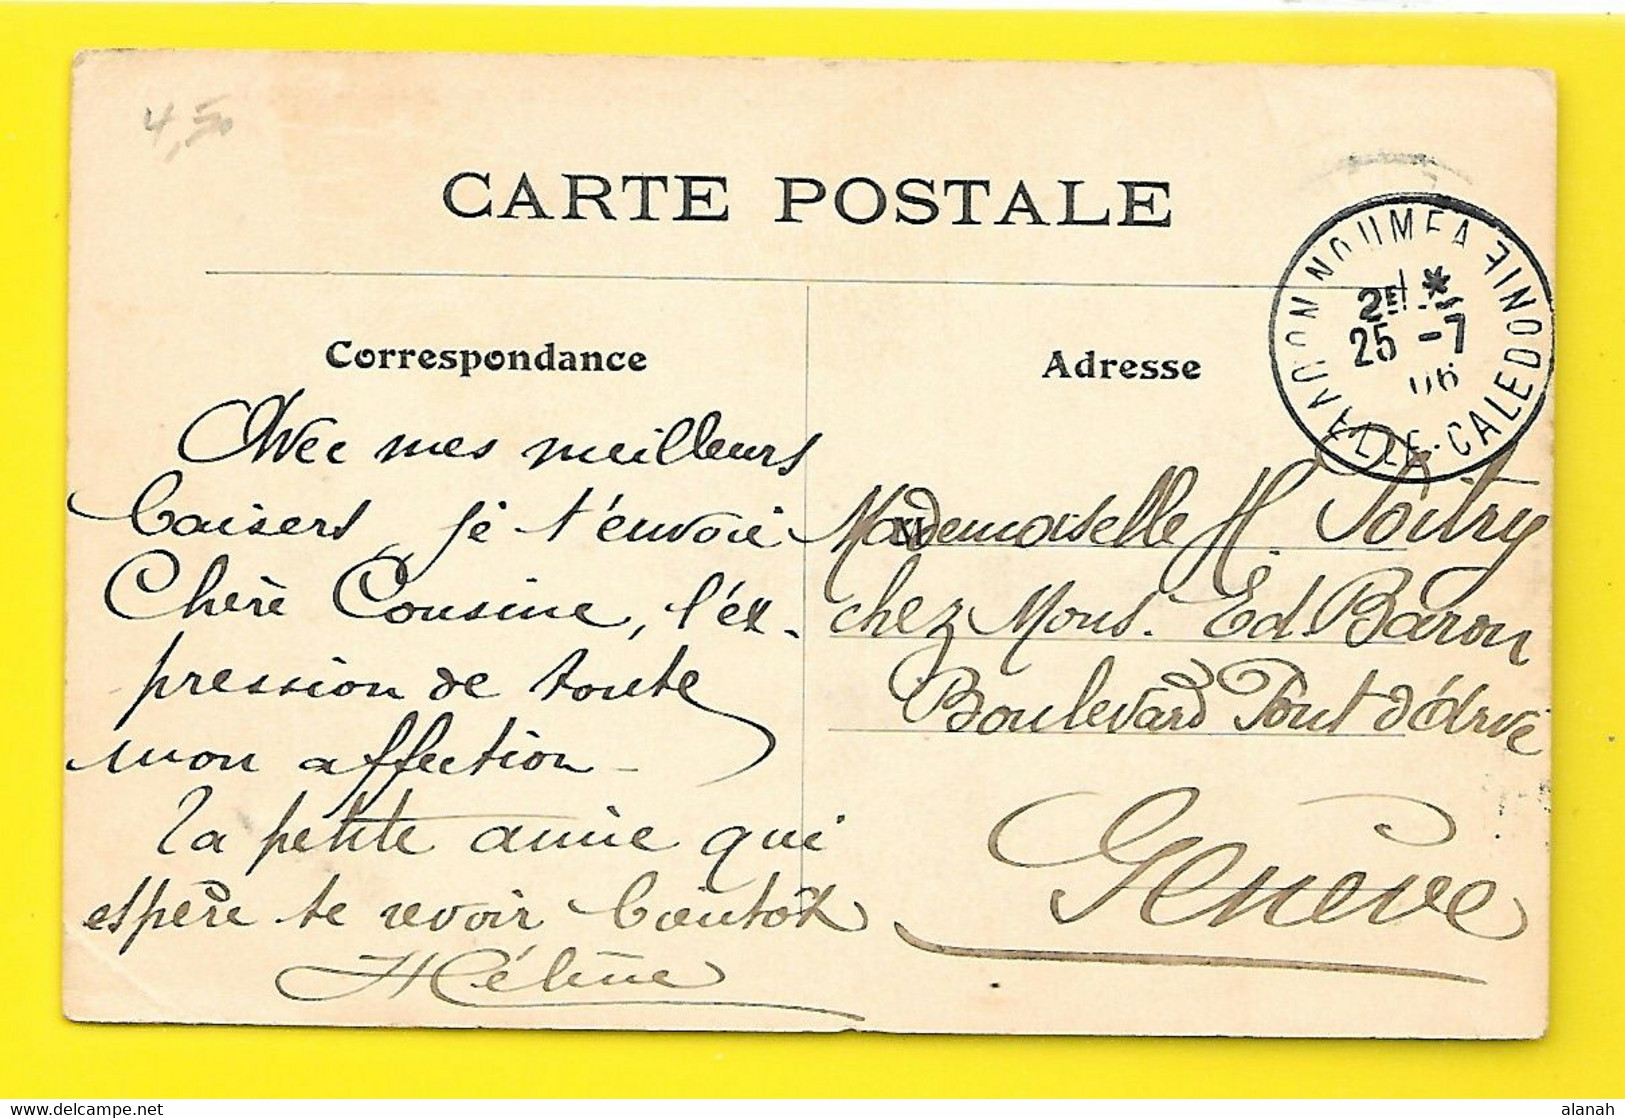 4,50
CARTE POSTALE
NOUMEA
Nlle-CALEDONIE
2E *
25 -7
06
Correspondance
Adresse
Avec mes meilleurs
baisers, je t'envoie
Chère Cousine, l'ex-
pression de toute
mon affection -
Ta petite amie qui
espère te revoir bientôt
Hélène
M
Mademoiselle H. Poitry
chez Mons. Ed. Baron
Boulevard Pont d'Arve
Genève
alanah